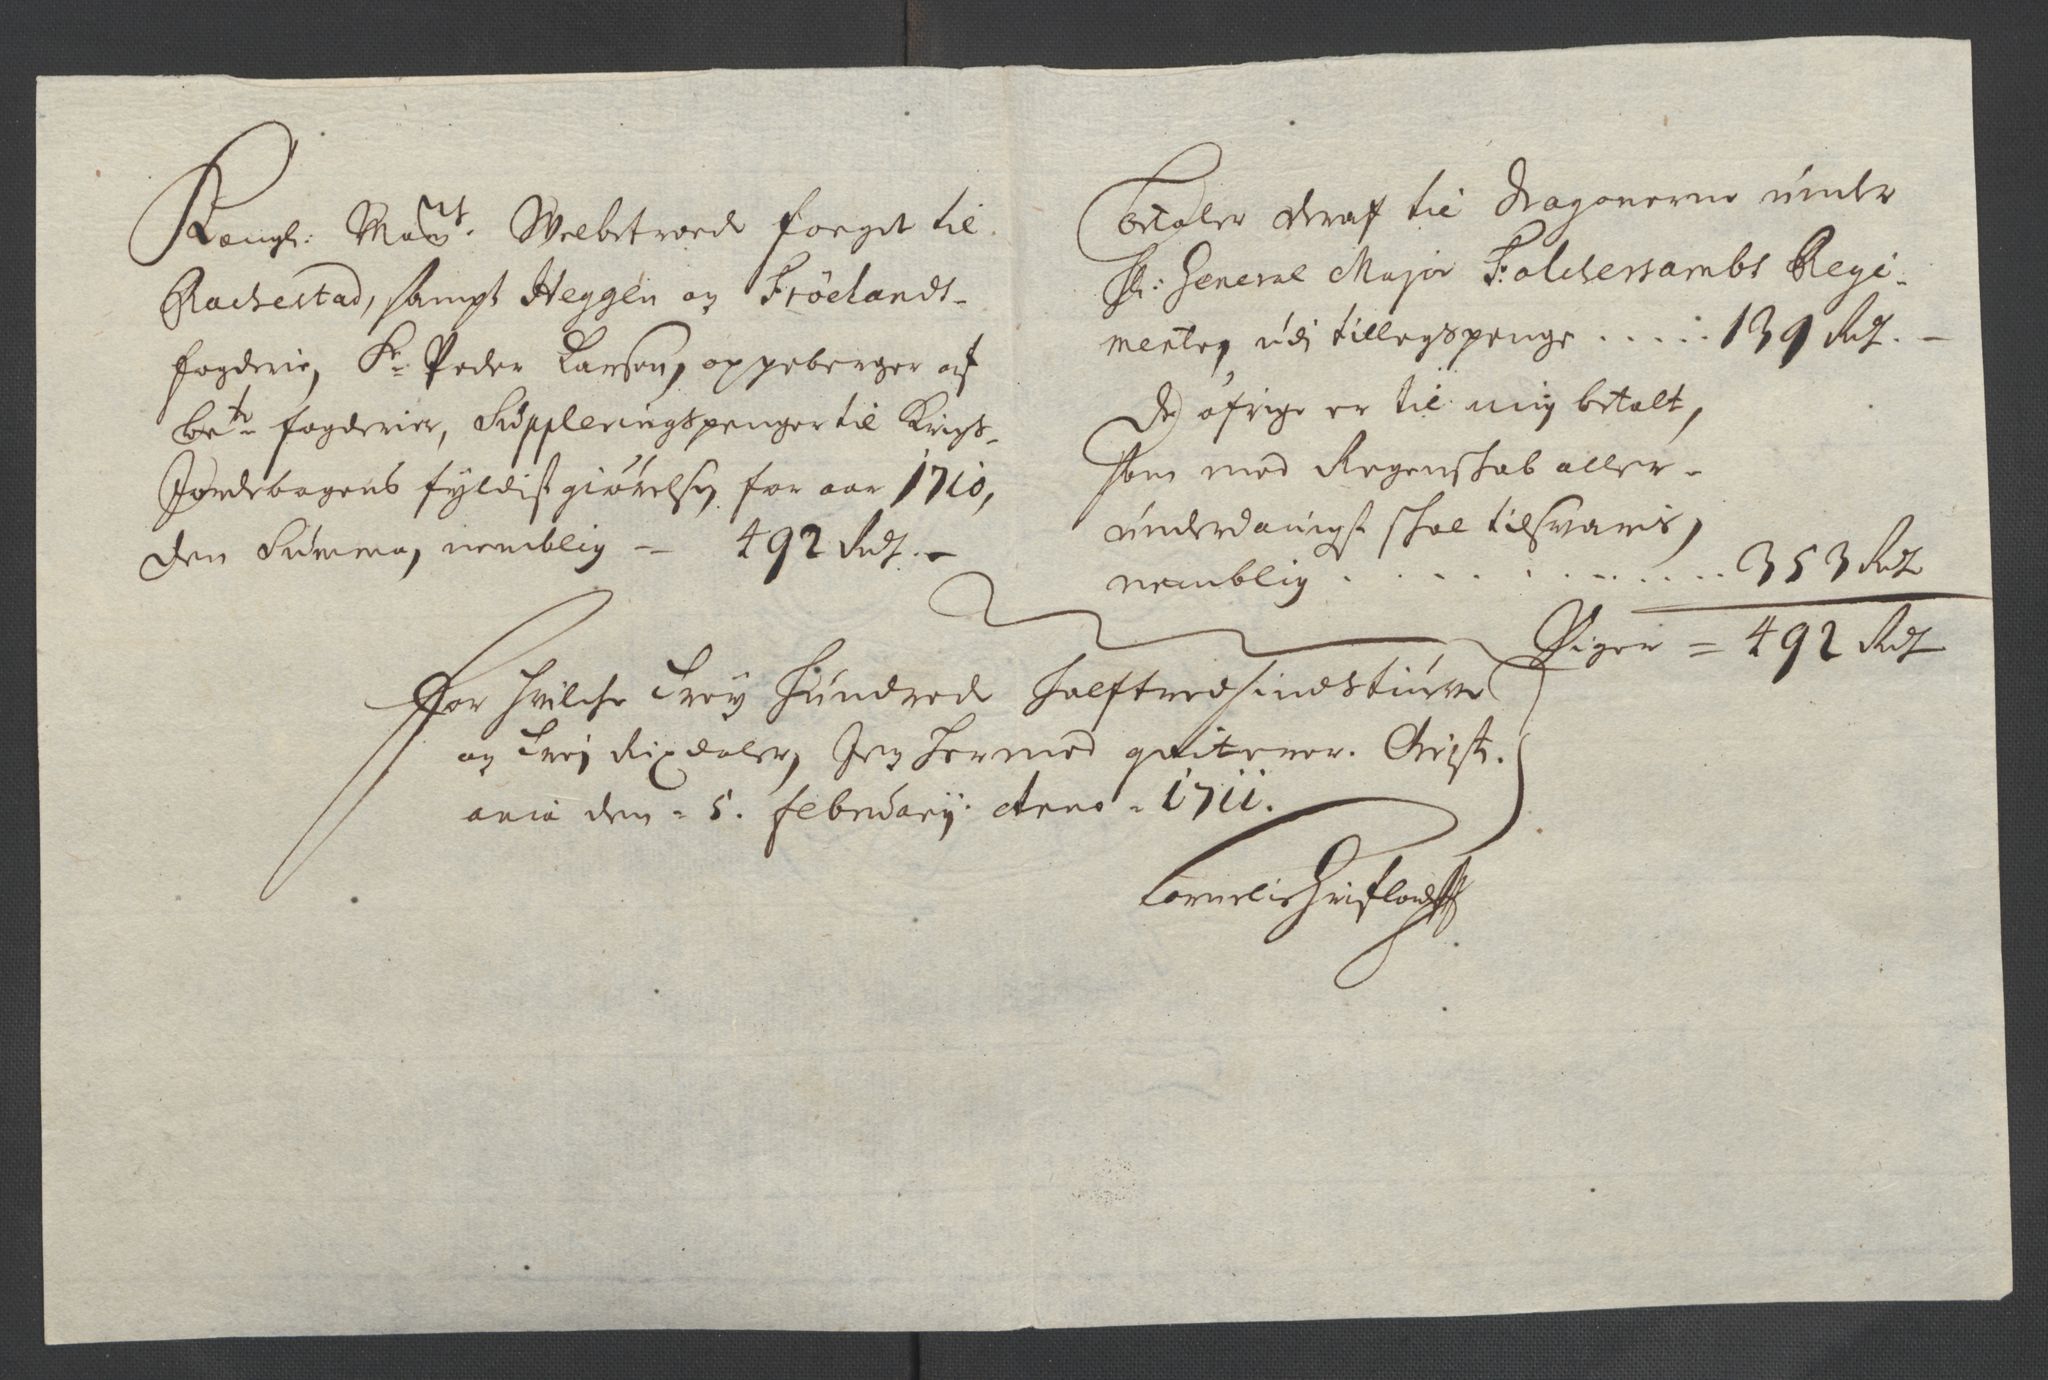 Kongl: May:ts Welbetroede foeget til
Rachestad, sampt Heggen og Fröelands-
fogderie, Sr. Peder Larsen, oppeberger af
be:te fogderier, Suppleringspenger til Krigs-
Jordebogens fyldistgiörelse, for aar 1710,
den Summa, nemblig — 492 Rdr. —
Betaler deraf til Dragonerne under
Hr: General Major Folchersambs Regi-
mente, udi tillegspenge ..... 139 Rdr. —
De öfrige er til mig betalt,
som med Regenskab aller-
underdanigst skal tilsvaris,
nemblig .......... 353 Rdr
Siger = 492 Rdr
For hvilche Trey Hundrede halftredsindstiuve
og Trej Rixdaler, Jeg hermed qviterer. Christi-
ania den = 5. february. Anno = 1711.
Cornelis